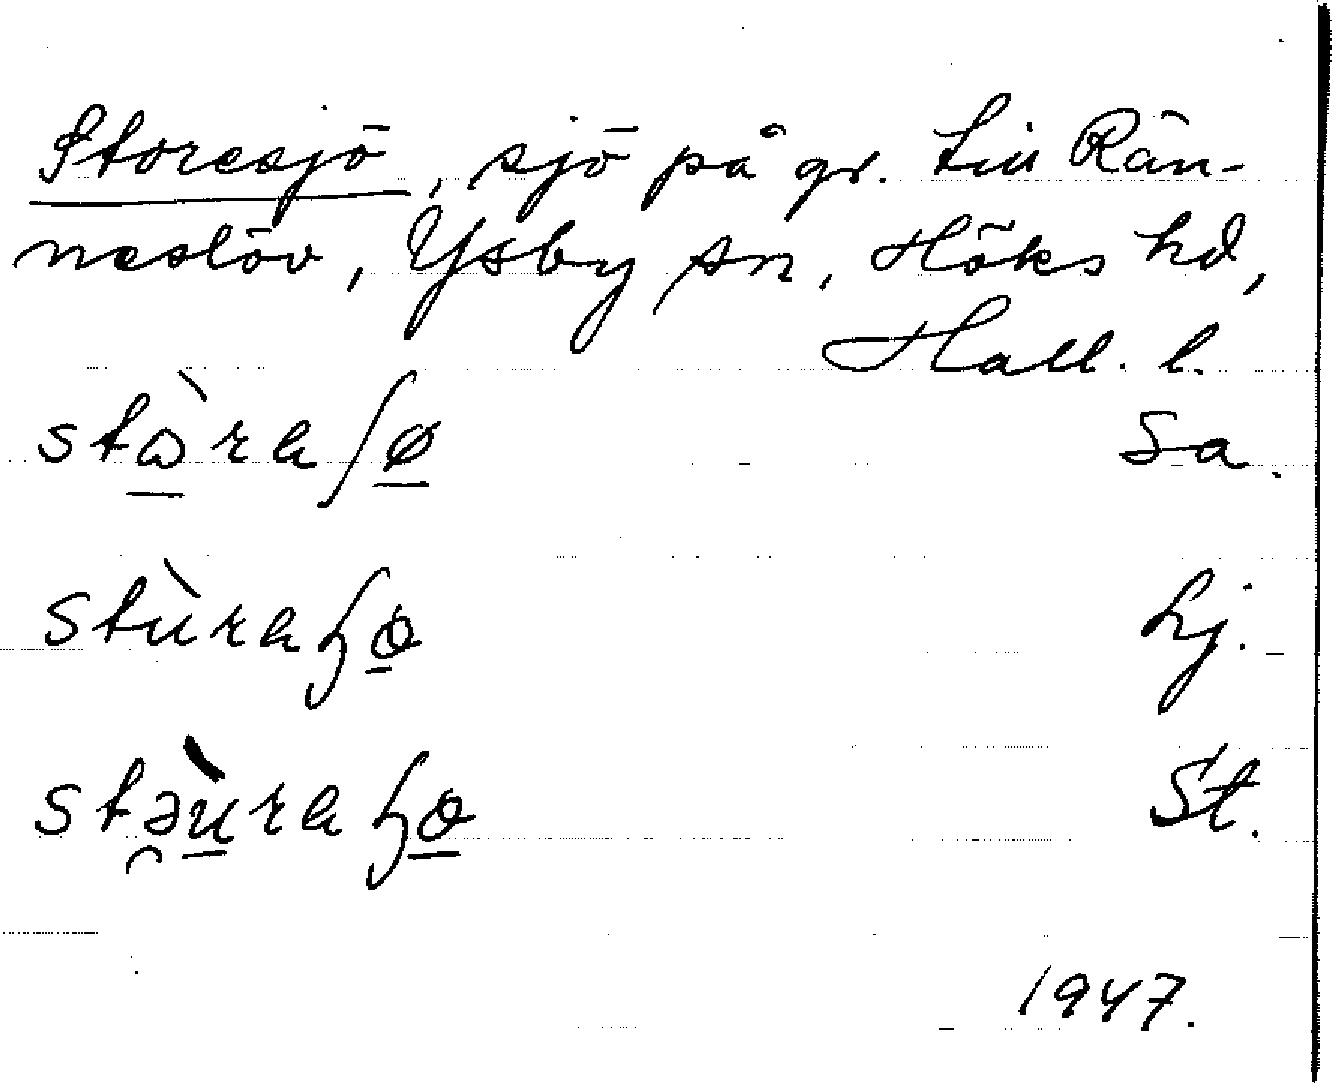 Storesjö, sjö på gr. till Rän-
neslöv, Ysby sn, Höks hd,
Hall. l.
stɷ̀raʃø Sa.
stùraɧø hj.
stə̯ùraɧø St.
1947.